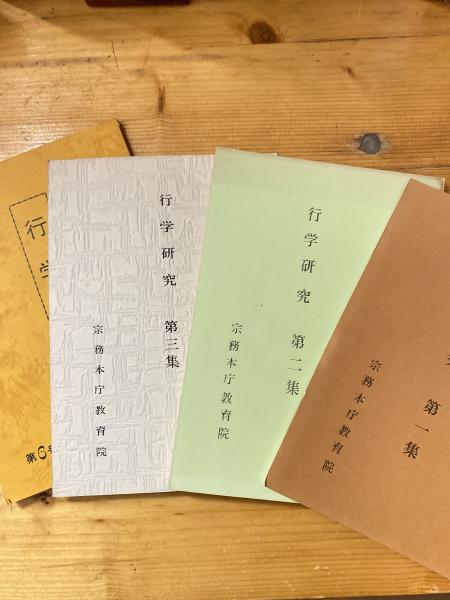 行学
第6号
行学研究 第三集
宗務本庁教育院
行学研究 第二集
宗務本庁教育院
第一集
宗務本庁教育院